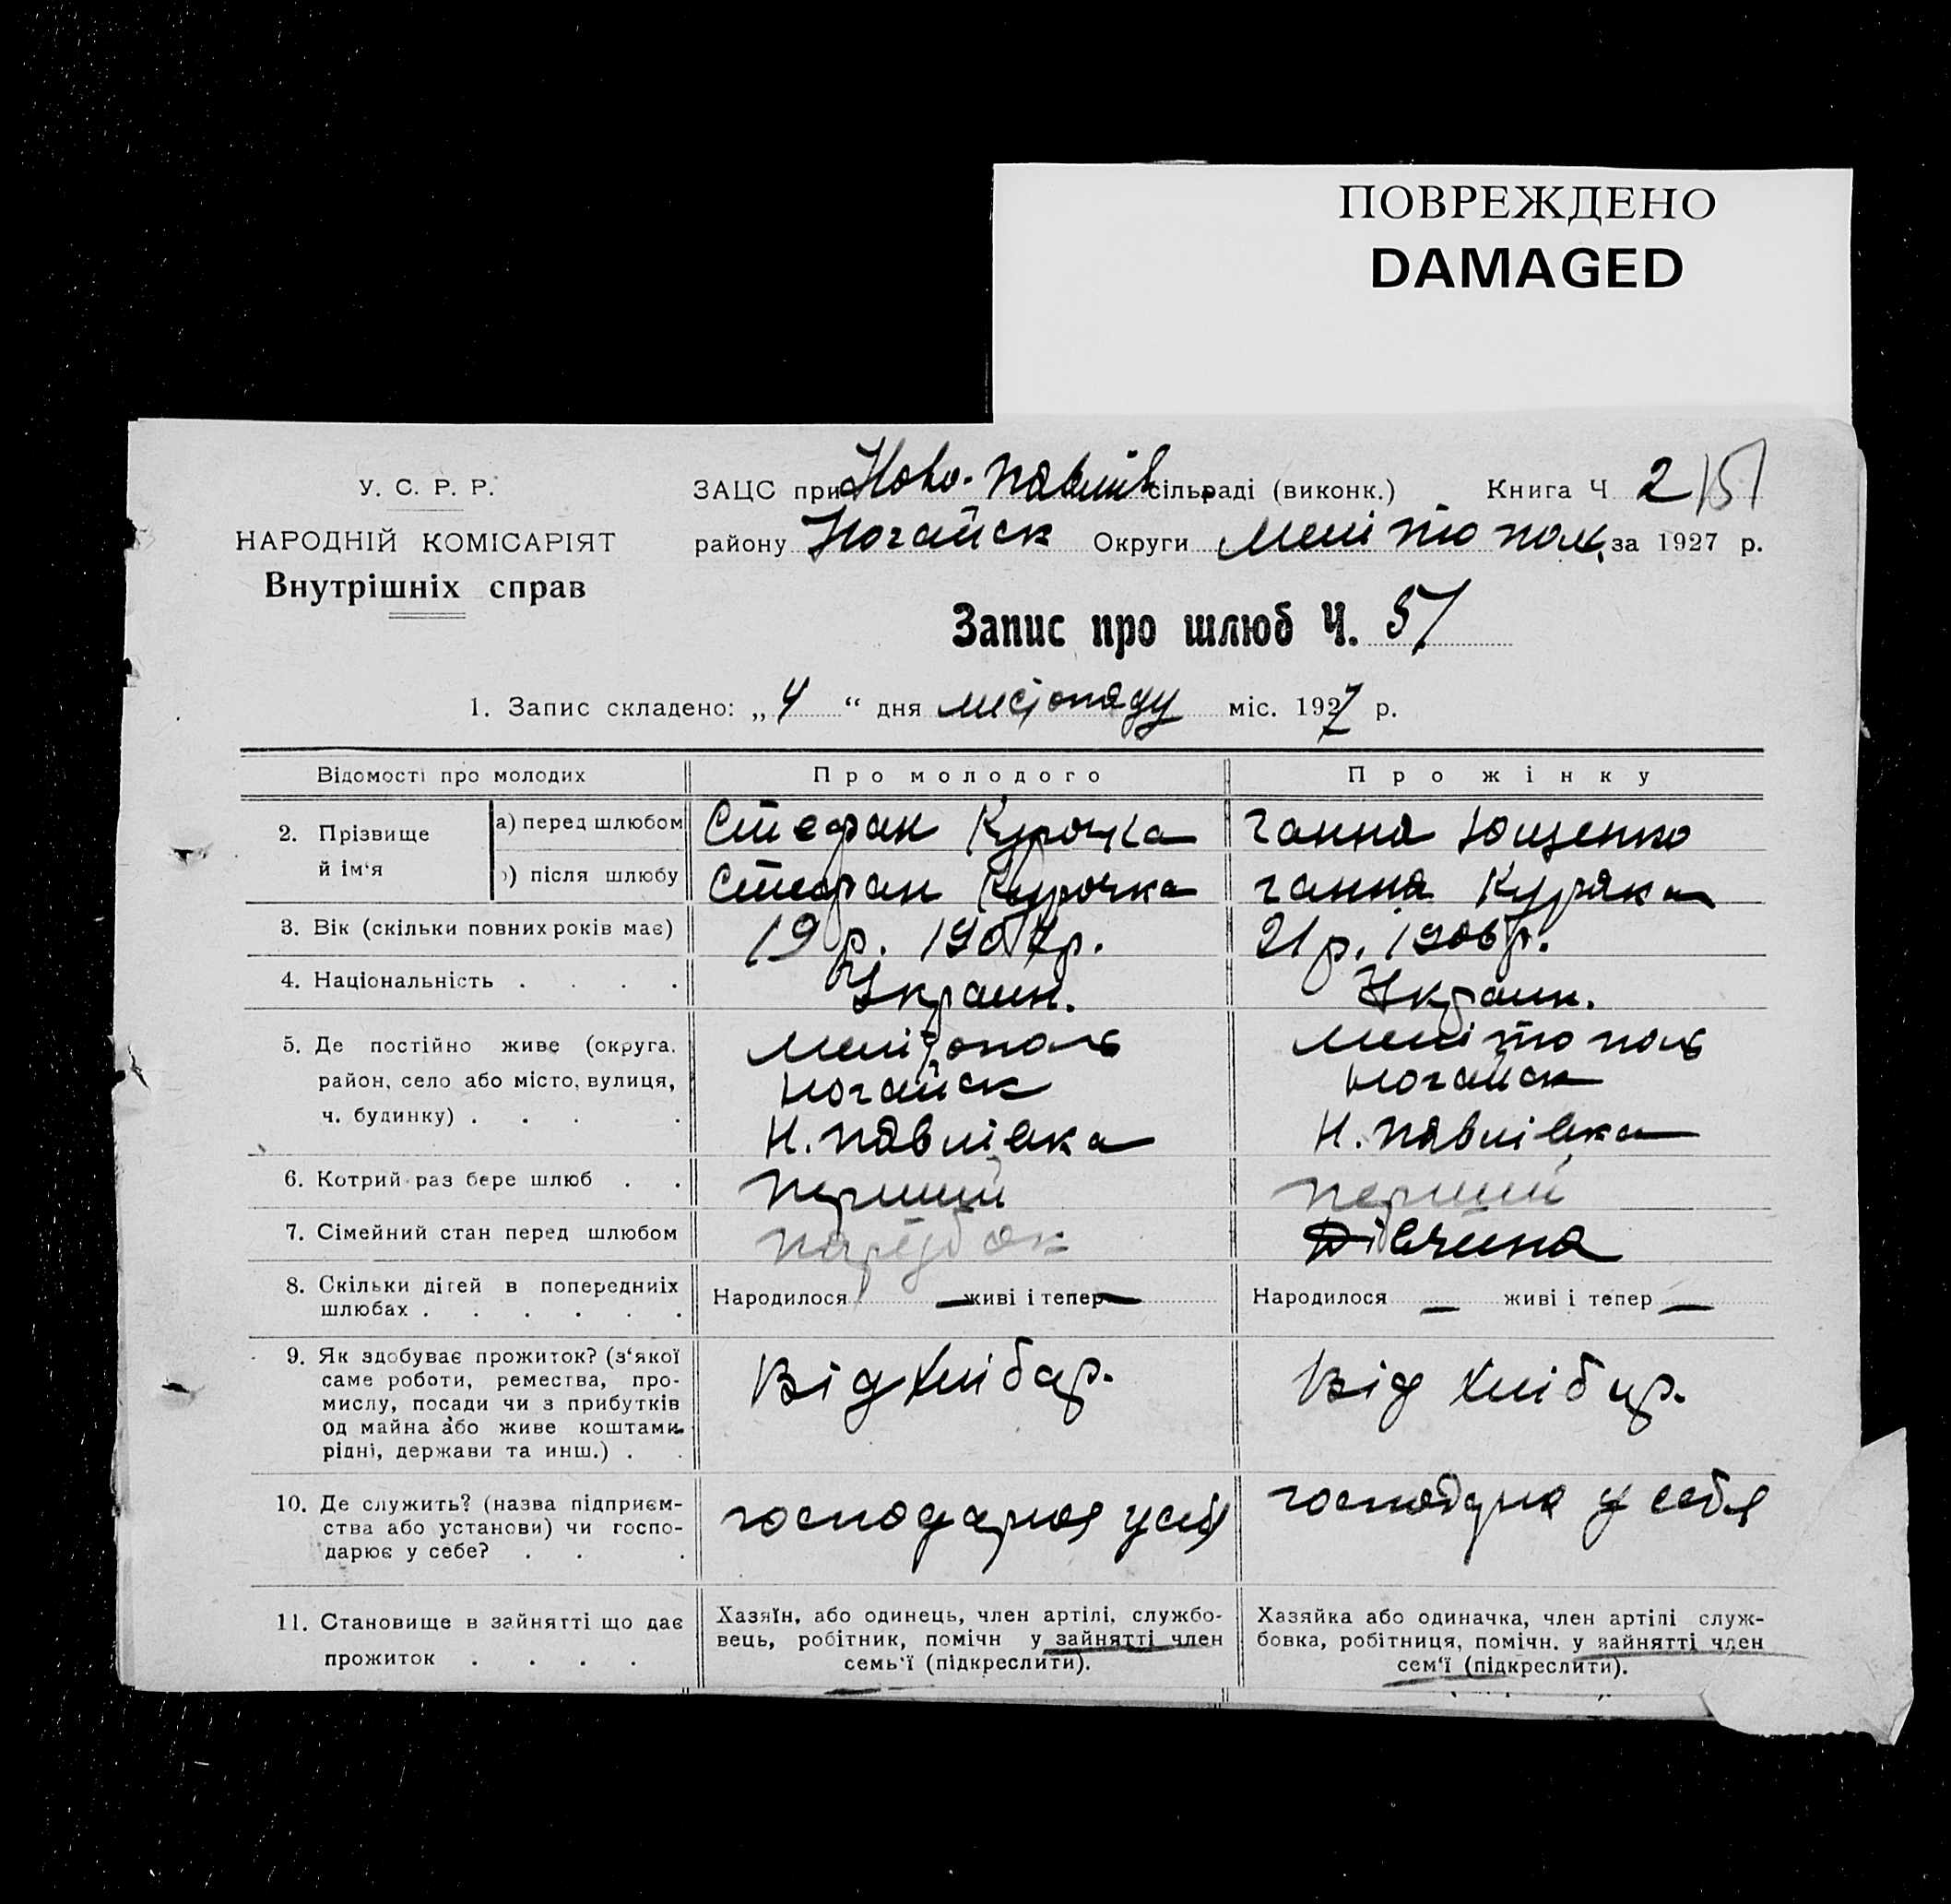 ПОВРЕЖДЕНО
DAMAGED
У. С. Р. Р.
НАРОДНІЙ КОМІСАРІЯТ
Внутрішніх справ
ЗАЦС при Ново-Павлів сільраді (виконк.) Книга Ч 2
району Ногайск Округи Мелітопол. за 1927 р.
Запис про шлюб Ч. 57
1. Запис складено: „4“ дня листопаду міс. 1927 р.
Відомості про молодих Про молодого Про жінку
2. Прізвище й ім‘я
а) перед шлюбом Стефан Курочка Ганна Ющенко
б) після шлюбу Стефан Курочка Ганна Курочка
3. Вік (скільки повних років має) 19 р. 1907 р. 21 р. 1906 р.
4. Національність . . . . Украин. Украин.
5. Де постійно живе (округа, Мелітополь Мелітополь
район, село або місто, вулиця, Ногайск Ногайск
ч. будинку) . . . . Н. Павлівка Н. Павлівка
6. Котрий раз бере шлюб . . перший перший
7. Сімейний стан перед шлюбом парубок Дівчина
8. Скільки дітей в попередніх Народилося — живі і тепер — Народилося — живі і тепер —
шлюбах . . . . . .
9. Як здобуває прожиток? (з‘якої
саме роботи, ремества, про- Від хлібор. Від хлібор.
мислу, посади чи з прибутків
од майна або живе коштами
рідні, держави та инш.) . .
10. Де служить? (назва підприєм- господарює у себе господарює у себе
ства або установи) чи госпо-
дарює у себе? . . .
11. Становище в зайнятті що дає
прожиток . . . .
Хазяїн, або одинець, член артілі, службо-
вець, робітник, помічн у зайнятті член
семь‘ї (підкреслити).
Хазяйка або одиначка, член артілі служ-
бовка, робітниця, помічн. у зайнятті член
сем‘ї (підкреслити).